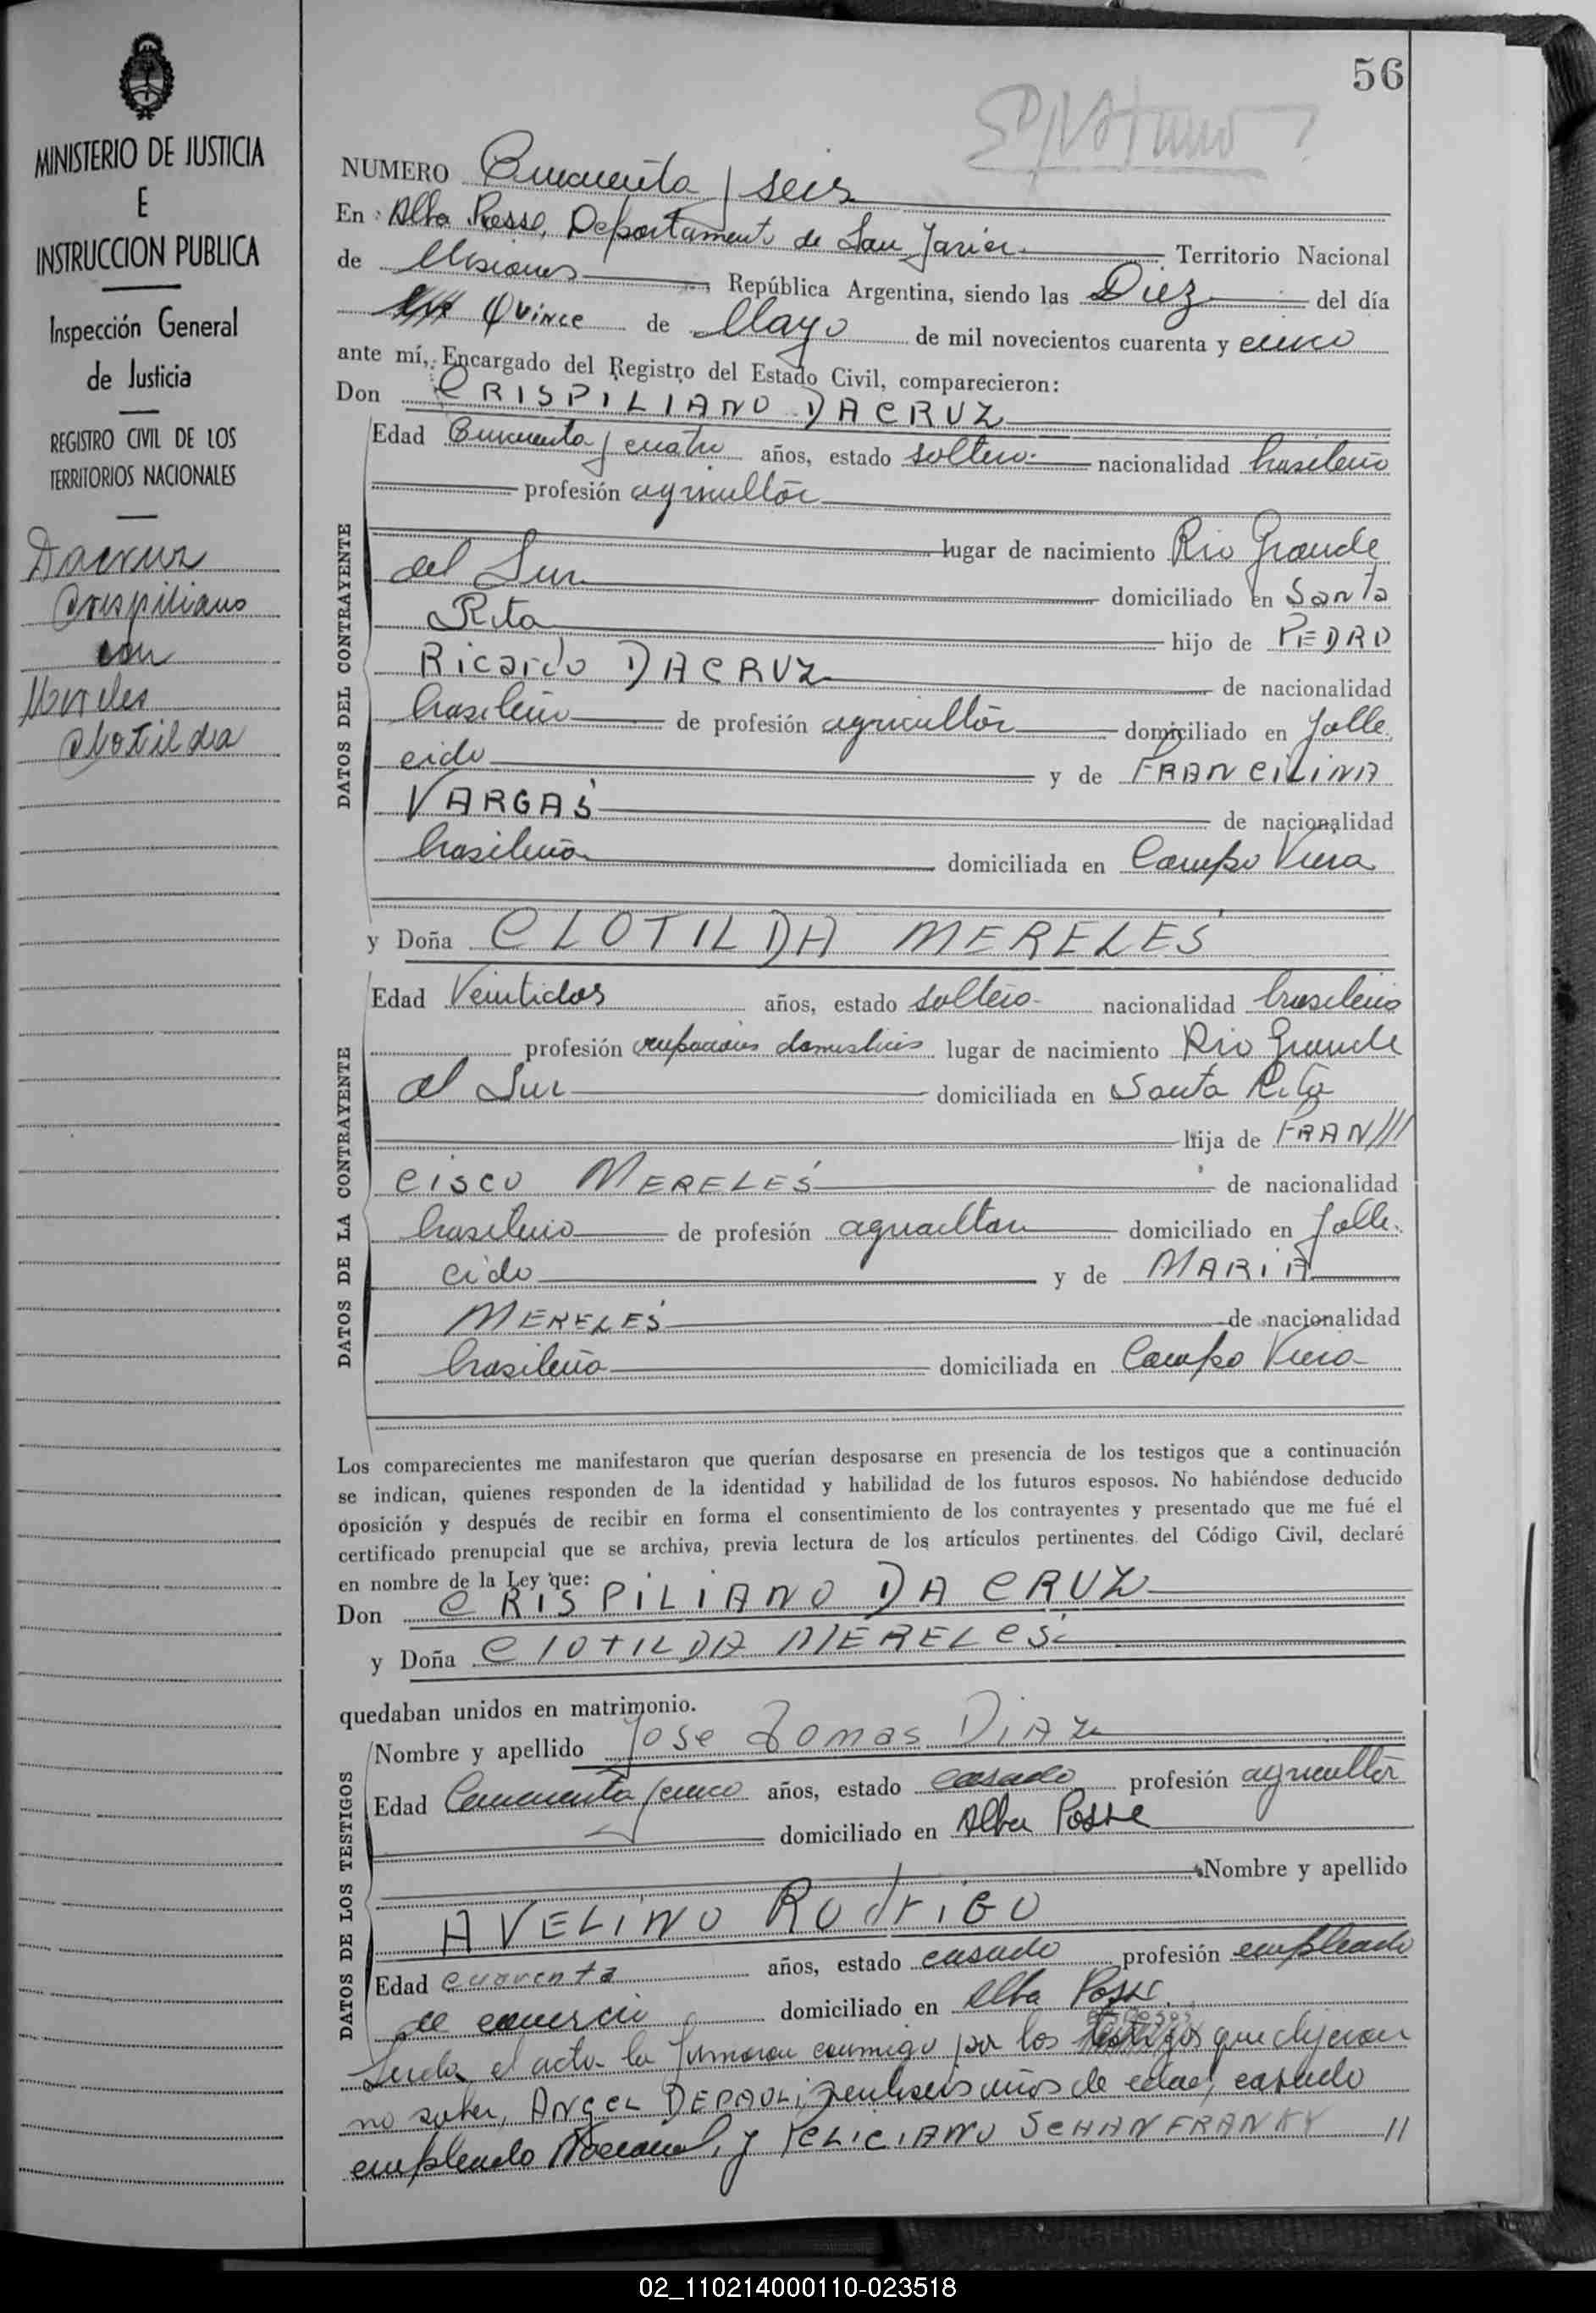 56
MINISTERIO DE JUSTICIA
E
INSTRUCCION PUBLICA
Inspección General
de Justicia
REGISTRO CIVIL DE LOS
TERRITORIOS NACIONALES
Dacruz
Crispiliano
con
Mereles
Clotilda
NUMERO Cincuenta y seis
En Alba Posse, Departamento de San Javier Territorio Nacional
de Misiones, República Argentina, siendo las Diez del día
Quince de Mayo de mil novecientos cuarenta y cinco
ante mí, Encargado del Registro del Estado Civil, comparecieron:
Don CRISPILIANO DACRUZ
DATOS DEL CONTRAYENTE
Edad Cincuenta y cuatro años, estado soltero nacionalidad brasileño
profesión agricultor
lugar de nacimiento Rio Grande
del Sur domiciliado en Santa
Rita hijo de PEDRO
Ricardo DACRUZ de nacionalidad
brasileño de profesión agricultor domiciliado en falle
cido y de FRANCILINA
VARGAS de nacionalidad
brasileña domiciliada en Campo Viera
y Doña CLOTILDA MERELES
DATOS DE LA CONTRAYENTE
Edad Veintidos años, estado soltera nacionalidad brasileña
profesión ocupaciones domesticas lugar de nacimiento Rio Grande
del Sur domiciliada en Santa Rita
hija de FRAN///
CISCO MERELES de nacionalidad
brasileño de profesión agricultor domiciliado en falle
cido y de MARIA
MERELES de nacionalidad
brasileña domiciliada en Campo Viera
Los comparecientes me manifestaron que querían desposarse en presencia de los testigos que a continuación
se indican, quienes responden de la identidad y habilidad de los futuros esposos. No habiéndose deducido
oposición y después de recibir en forma el consentimiento de los contrayentes y presentado que me fué el
certificado prenupcial que se archiva, previa lectura de los artículos pertinentes del Código Civil, declaré
en nombre de la Ley que:
Don CRISPILIANO DA CRUZ
y Doña CLOTILDA MERELES
quedaban unidos en matrimonio.
DATOS DE LOS TESTIGOS
Nombre y apellido Jose Tomas DIAZ
Edad Cincuenta y cinco años, estado casado profesión agricultor
domiciliado en Alba Posse
Nombre y apellido
AVELINO RODRIGO
Edad cuarenta años, estado casado profesión empleado
de comercio domiciliado en Alba Posse.
Leida el acta la firmaron conmigo por los esposos que dijeron
no saber, ANGEL DEPAULI, veintiseis años de edad, casado
empleado Nacional, y FELICIANO SCHANFRANKY //
02_110214000110-023518